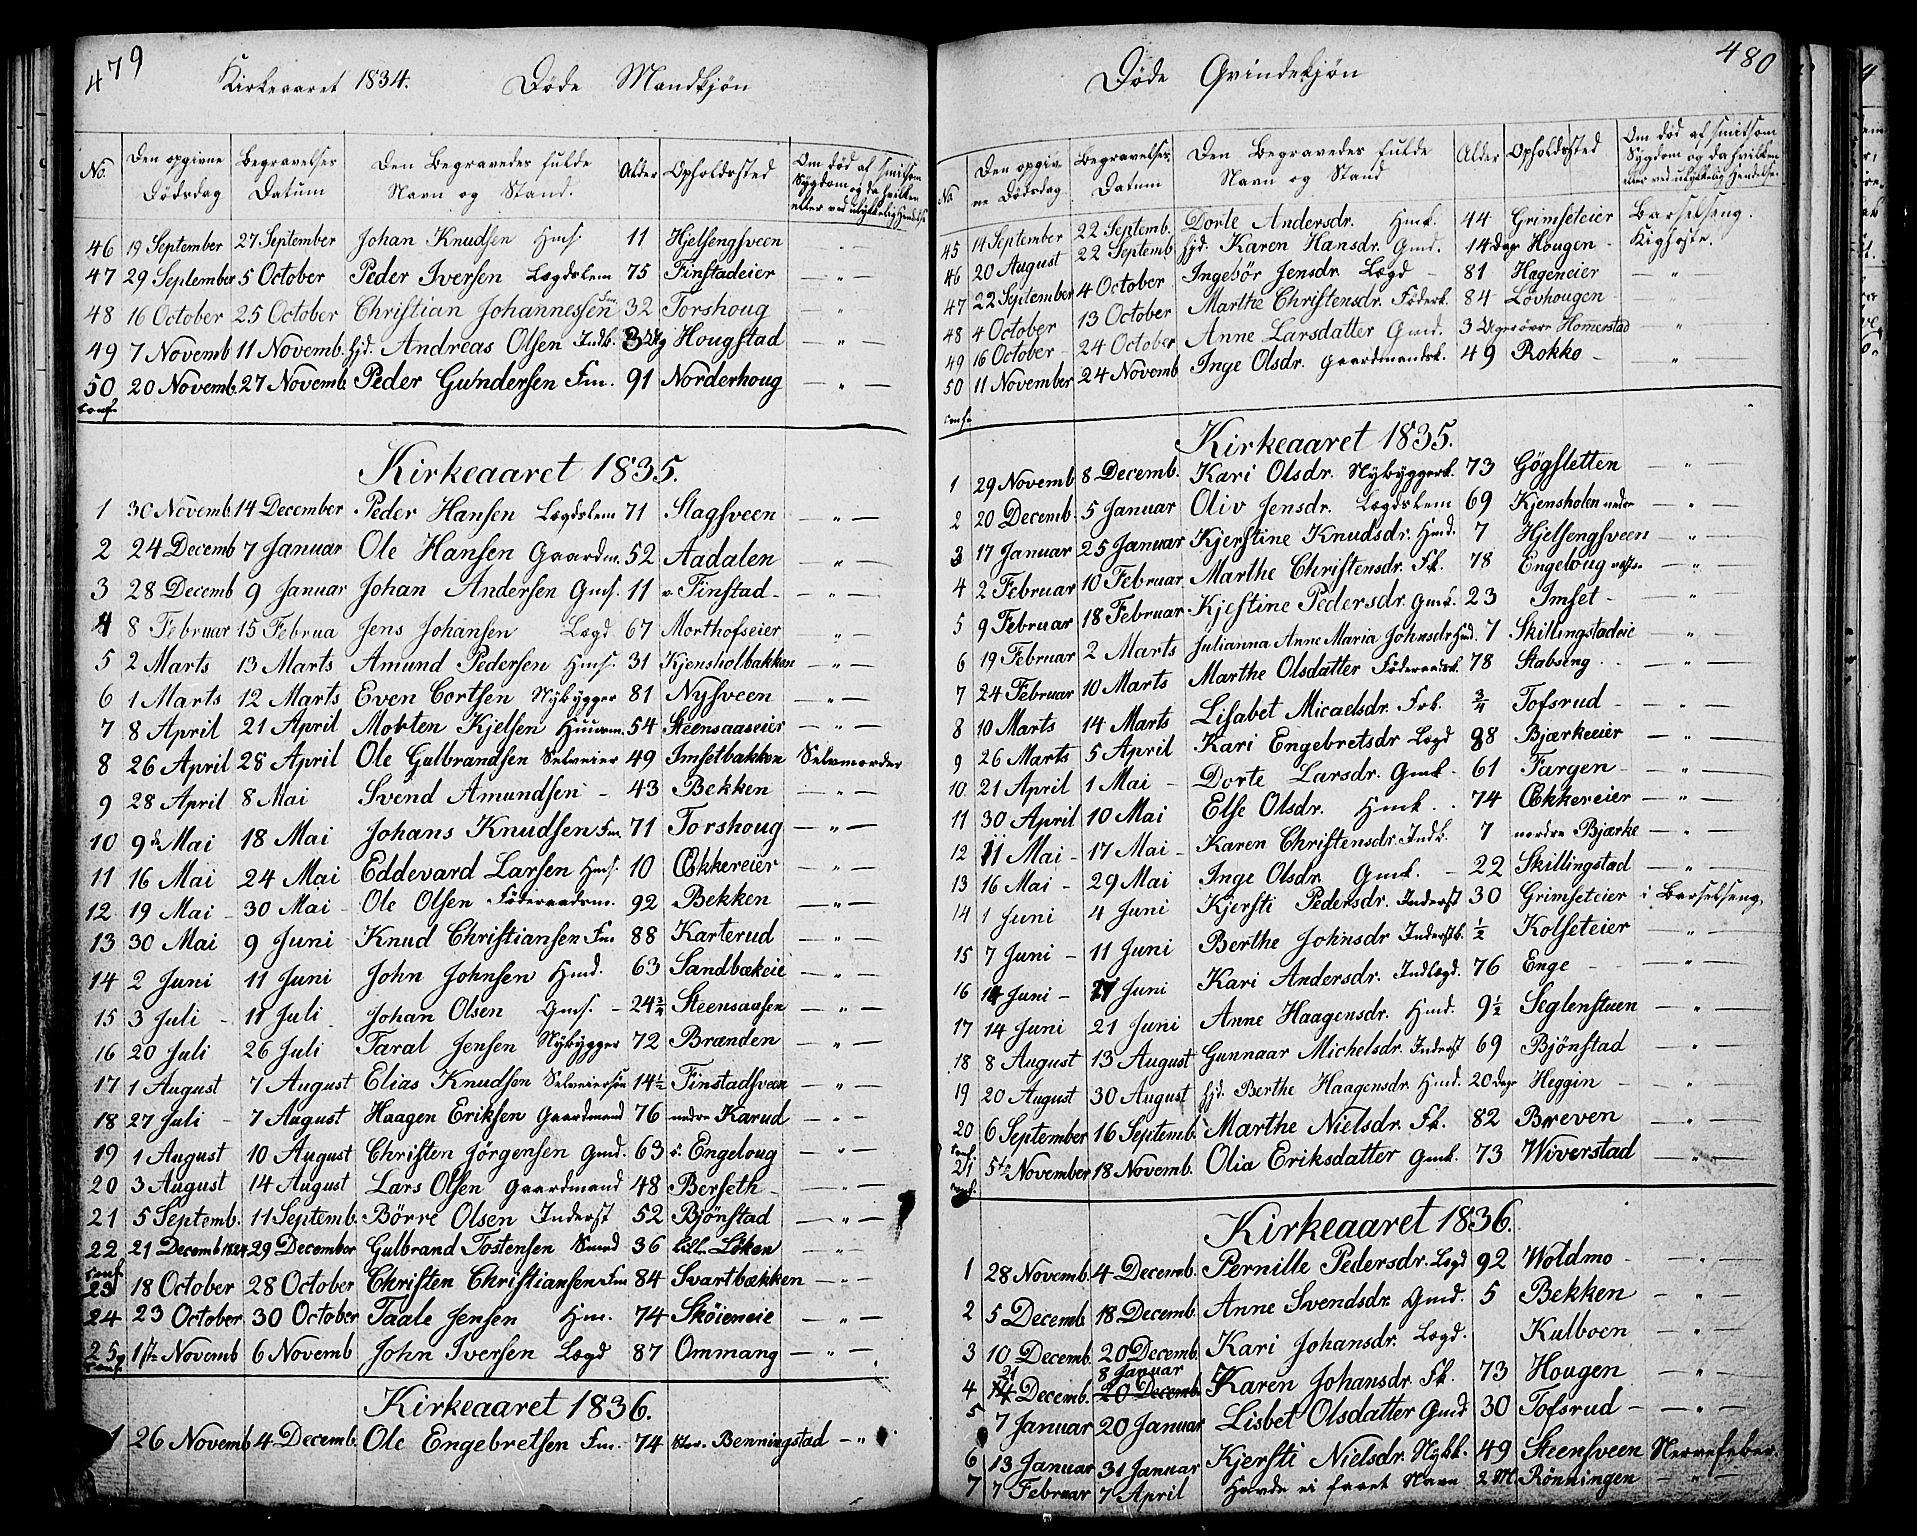 479
Kirkeaaret 1834. Døde Mandkjøn
No. Den opgivne Dødsdag Begravelses Datum Den Begravedes fulde Navn og Stand. Alder Opholdssted Om død af smitsom Sygdom og da hvilken eller ved ulykkelig Hendelse
46 19 September 27 September Johan Knudsen Hms. 11 Hjelsengsveen — „ —
47 29 September 5 October Peder Iversen Lægdslem 75 Finstadeier — „ —
48 16 October 25 October Christian Johannessen Fm. 32 Torshoug — „
49 7 Novemb 11 Novemb. hjd. Andreas Olsen Indb. 3 Ug Hougstad — „ —
50 20 Novemb. 27 Novemb. Peder Gundersen Fm. 91 Norderhoug — „ —
Conf.
Kirkeaaret 1835.
1 30 Novemb. 14 December Peder Hansen Lægdslem 71 Slagsveen — „ —
2 24 Decemb 7 Januar Ole Hansen Gaardm. 52 Aadalen — „ —
3 28 Decemb 9 Januar Johan Andersen Gms. 11 v. Finstad — „ —
4 8 Februar 15 Februa Jens Johansen Lægd 67 Morthofseier „ —
5 2 Marts 13 Marts Amund Pedersen Hms. 31 Kjensholbakken — „ —
6 1 Marts 12 Marts Even Cortsen Nybygger 81 Nysveen — „ —
7 8 April 21 April Morten Kjelsen Huusm. 54 Steensaaseier — „ —
8 26 April 28 April Ole Gulbrandsen Selveier 49 Imsetbakken Selvmorder
9 28 April 8 Mai Svend Amundsen - 43 Bekken — „ —
10 9de Mai 18 Mai Johans Knudsen Fm. 71 Torshoug — „ —
11 16 Mai 24 Mai Eddevard Larsen Hms. 10 Økkereier — „ —
12 19 Mai 30 Mai Ole Olsen Föderaadsm. 92 Bekken — „ —
13 30 Mai 9 Juni Knud Christiansen Fm 88 Karterud — „ —
14 2 Juni 11 Juni John Johnsen Hmd. 63 Sandbækeie — „ —
15 3 Juli 11 Juli Johan Olsen Gms. 24 3/4 Steensaasen — „ —
16 20 Juli 26 Juli Taral Jensen Nybygger 72 Brænden — „ —
17 1 August 7 August Elias Knudsen Selveiersön 14 1/2 Finstadsveen — „ —
18 27 Juli 7 August Haagen Eriksen Gaardmand 76 nedre Karud — „ —
19 1 August 10 August Christen Jörgensen Gmd. 63 ö. Engeloug — „ —
20 3 August 14 August Lars Olsen Gaardmand 48 Berseth — „ —
21 5 Septemb. 11 Septemb. Börre Olsen Inderst 52 Bjönstad — „ —
22 21 Decemb 1824 29 December Gulbrand Tostensen Smed 36 Lille Löken — „ —
Conf.
23 18 October 28 October Christen Christiansen Fm 84 Svartbækken — „ —
24 23 October 30 October Taale Jensen Hm. 74 Sköieneie — „ —
25 1ste Novemb 6 Novemb John Iversen Lægd 87 Ommang — „ —
Conf.
Kirkeaaret 1836.
1 26 Novemb 4 Decemb. Ole Engebretsen Fm. 74 Benningstad - „
480
Døde Qvindekjøn
No Den opgivne Dødsdag Begravelses Datum Den Begravedes fulde Navn og Stand Alder Opholdssted Om død af smitsom Sygdom og da hvilken eller ved ulykkelig Hendelse
45 14 September 22 Septemb. Dorte Andersdr. Hmk. 44 Grimseteier Barselseng.
46 20 August 22 Septemb hjd. Karen Hansdr. Gmd. 14 Dage Hougen Kighoste.
47 22 September 4 October Ingebör Jensdr. Lægd 81 Hageneier — „ —
48 4 October 13 October Marthe Christensdr. Föderk. 84 Lovhougen — „ —
49 16 October 24 October Anne Larsdatter Gmd. 3 Uger övre Homerstad „
50 11 November 24 Novemb Inge Olsdr. Gaardmandsk. 49 Rokko — „
Conf.
Kirkeaaret 1835.
1 29 Novemb 8 Decemb. Kari Olsdr. Nybyggerk. 73 Gögsletten — „ —
2 20 Decemb. 5 Januar Oliv Jensdr. Lægdslem 69 Kjensholen nedre — „ —
3 17 Januar 25 Januar Kjerstine Knudsdr. Hmd. 7 Hjelsengsveen — „ —
4 2 Februar 10 Februar Marthe Christensdr. Fk. 78 Engeloug — „ —
5 9 Februar 18 Februar Kjestine Pedersdr. Gmk. 23 Imset — „ —
6 19 Februar 2 Marts Julianna Anne Maria Johnsdr. Hmd. 7 Skillingstadeie — „ —
7 24 Februar 10 Marts Marthe Olsdatter Föderaadsk. 78 Stabseng — „ —
8 10 Marts 14 Marts Lisabet Micaelsdr. Frb. 3/4 Tofsrud — „ —
9 26 Marts 5 April Kari Engebretsdr Lægd 98 Bjærkeeier — „ —
10 21 April 1 Mai Dorte Larsdr. Gmk. 61 Fargen — „ —
11 30 April 10 Mai Else Olsdr. Hmk. 74 Økkereier — „ —
12 11 Mai 17 Mai Karen Christensdr. Indb. 7 nordre Bjærke — „ —
13 16 Mai 29 Mai Inge Olsdr. Gmk. 22 Skillingstad — „ —
14 1 Juni 4 Juni Kjersti Pedersdr. Inderst 30 Grimseteier i Barselseng.
15 7 Juni 11 Juni Berthe Johnsdr Inderstb. 1/2 Kolseteier — „ —
16 14 Juni 17 Juni Kari Andersdr. Indlægd. 76 Enge — „ —
17 14 Juni 21 Juni Anne Haagensdr. Hmd. 9 1/2 Seglenstuen — „ —
18 8 August 13 August Gunnaar Michelsdr. Inderst 69 Bjönstad — „ —
19 20 August 30 August hjd. Berthe Haagensdr. Hmd. 20 Dage Heggin — „ —
20 6 September 16 Septemb. Marthe Nielsdr. Fk. 82 Breven — „ —
Conf.
21 5te November 18 Novemb. Olia Eriksdatter Gmk. 73 Wiverstad — „ —
Conf.
Kirkeaaret 1836.
1 28 Novemb. 4 Decemb. Pernille Pedersdr. Lægd 92 Woldmo — „ —
2 5 Decemb 18 Decemb. Anne Svendsdr. Gmd. 5 Bekken — „ —
3 10 Decemb. 20 Decemb. Kari Johansdr. Lægd. Kulboen — „ —
4 21 Decemb. 8 Januar 20 Decemb. Karen Johansdr. Fk. 73 Hougen — „ —
5 7 Januar 20 Januar Lisbet Olsdatter Gmd 30 Tofsrud — „ —
6 13 Januar 31 Januar Kjersti Nielsdr. Nybk. 49 Steensveen Nervefeber
7 7 Februar 7 April Havde ei faaet Navn 2 M. Rönningen — „ —